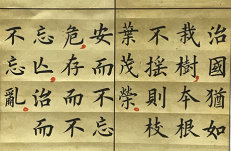 治國猶如
栽樹本根
不搖則枝
葉茂榮
安而不忘
危存而不
忘亾治而
不忘亂